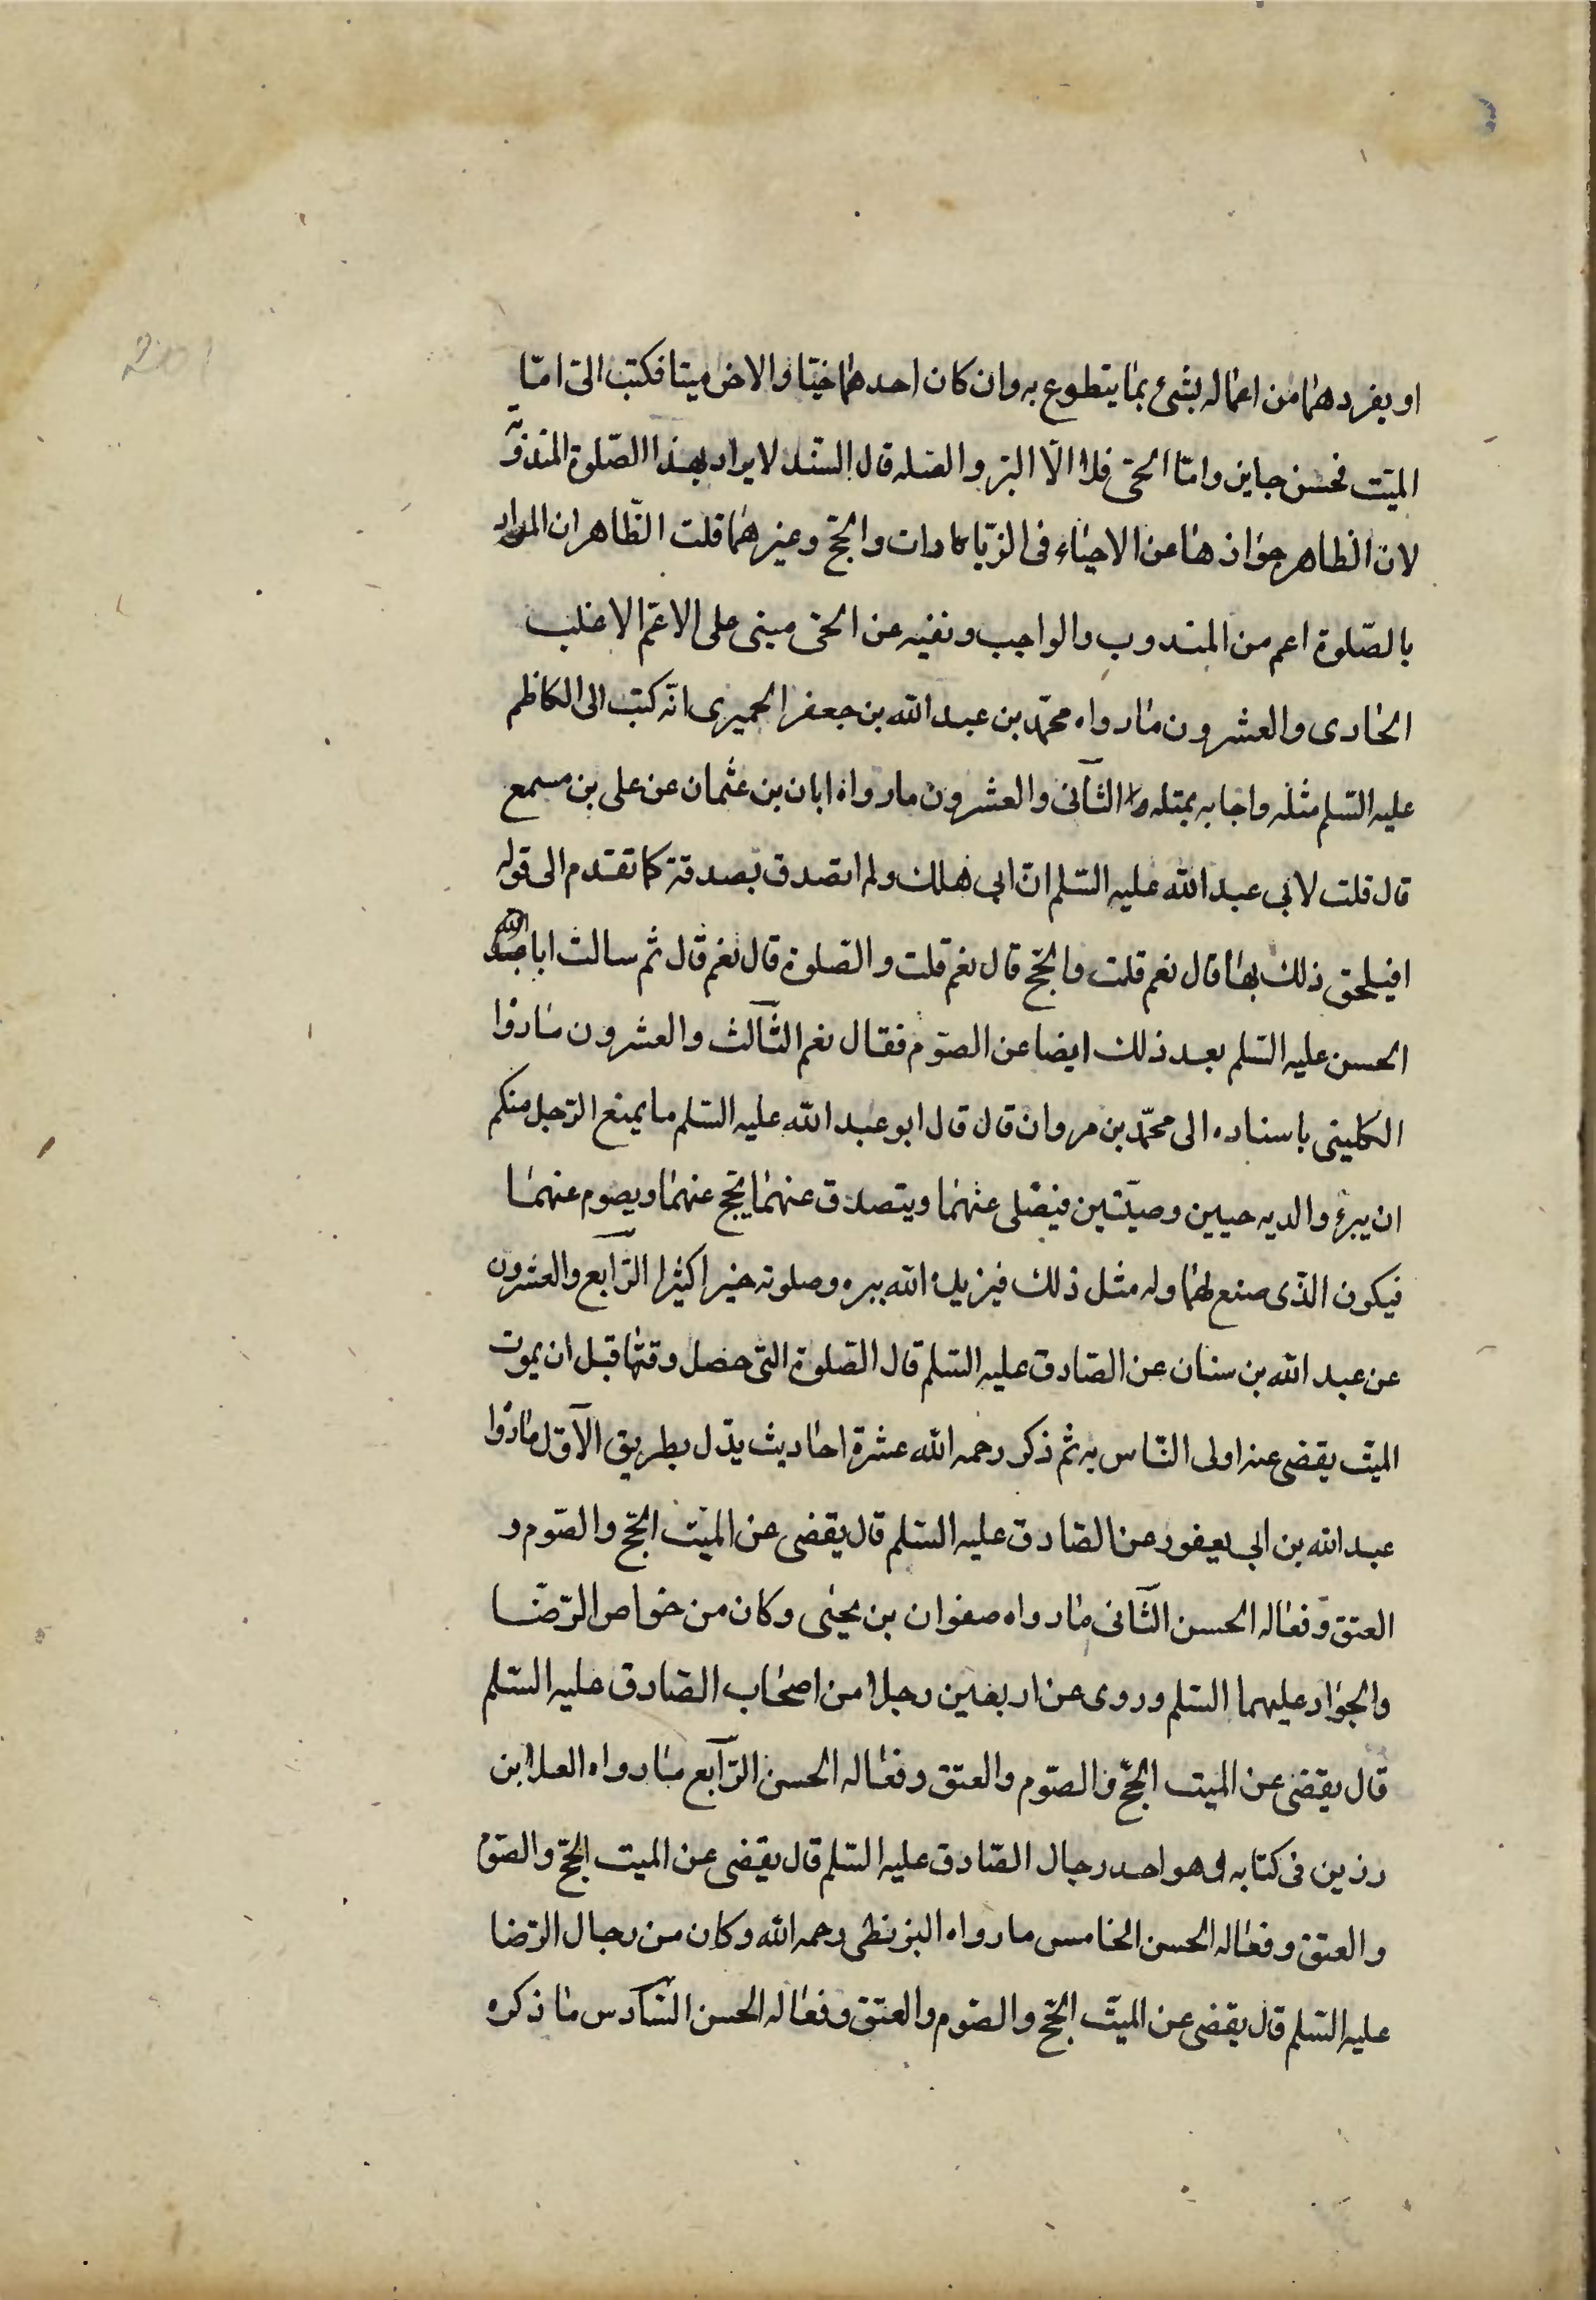 201
او يفردهما من اعماله بشئ بما يتطوع به وان كان احدهما حيا والاخر ميتا فكتب الىّ امّا
الميّت فحسن جايز وامّا الحىّ فلا الّا البرّ والصله قال السّند لا يراد بهذا الصّلوة المندوبة
لان الظاهر جوازها عن الاحياء فى الزّيارات والحجّ وغيرهما قلت الظّاهر ان المراد
بالصّلوة اعم من المندوب والواجب ونفيه عن الحىّ مبنى على الاعمّ الاغلب
الحادى والعشرون ما رواه محمّد بن عبد الله بن جعفر الحميرى انّه كتب الى الكاظم
عليه السّلم مثله واجابه بمثله الثّانى والعشرون ما رواه ابان بن عثمان عن على بن مسمع
قال قلت لابى عبد الله عليه السّلم انّ ابى هلك ولم اتصدق بصدقة كما تقدم الى قوله
افيلحق ذلك بها قال نعم قلت والحجّ قال نعم قلت والصلوة قال نعم قال ثم سالت ابا عبد الله
الحسن عليه السّلم بعد ذلك ايضا عن الصّوم فقال نعم الثّالث والعشرون ما روا
الكلينى باسناده الى محمّد بن مروان قال قال ابو عبد الله عليه السّلم ما يمنع الرّجل منكم
ان يبرّ والديه حيين وميّتين فيصّلى عنهما ويتصدق عنهما يحج عنهما ويصوم عنهما
فيكون الّذى صنع لهما وله مثل ذلك فيزيده الله ببره وصلوته خيرا كثيرا الرّابع والعشرون
عن عبد الله بن سنان عن الصّادق عليه السّلم قال الصّلوة الّتى حصل وقتها قبل ان يموت
الميّت يقضى عنه اولى النّاس به ثم ذكر رحمه الله عشرة احاديث يدّل بطريق الآوّل ما روا
عبد الله بن ابى يعفور عن الصّادق عليه السّلم قال يقضى عن الميّت الحجّ والصّوم و
العتق وفعاله الحسن الثّانى ما رواه صفوان بن يحيى وكان من خواص الرّضا
والجواد عليهما السّلم وروى عن اربعين رجلا من اصحاب الصّادق عليه السّلم
قال يقضى عن الميت الحجّ والصّوم والعتق وفعاله الحسن الرّابع ما رواه العلا بن
رزين فى كتابه وهو احد رجال الصّادق عليه السّلم قال يقضى عن الميت الحجّ والصّوم
والعتق وفعاله الحسن الخامس ما رواه البزنطى رحمه الله وكان من رجال الرّضا
عليه السّلم قال يقضى عن الميّت الحجّ والصّوم والعتق وفعاله الحسن السّادس ما ذكره